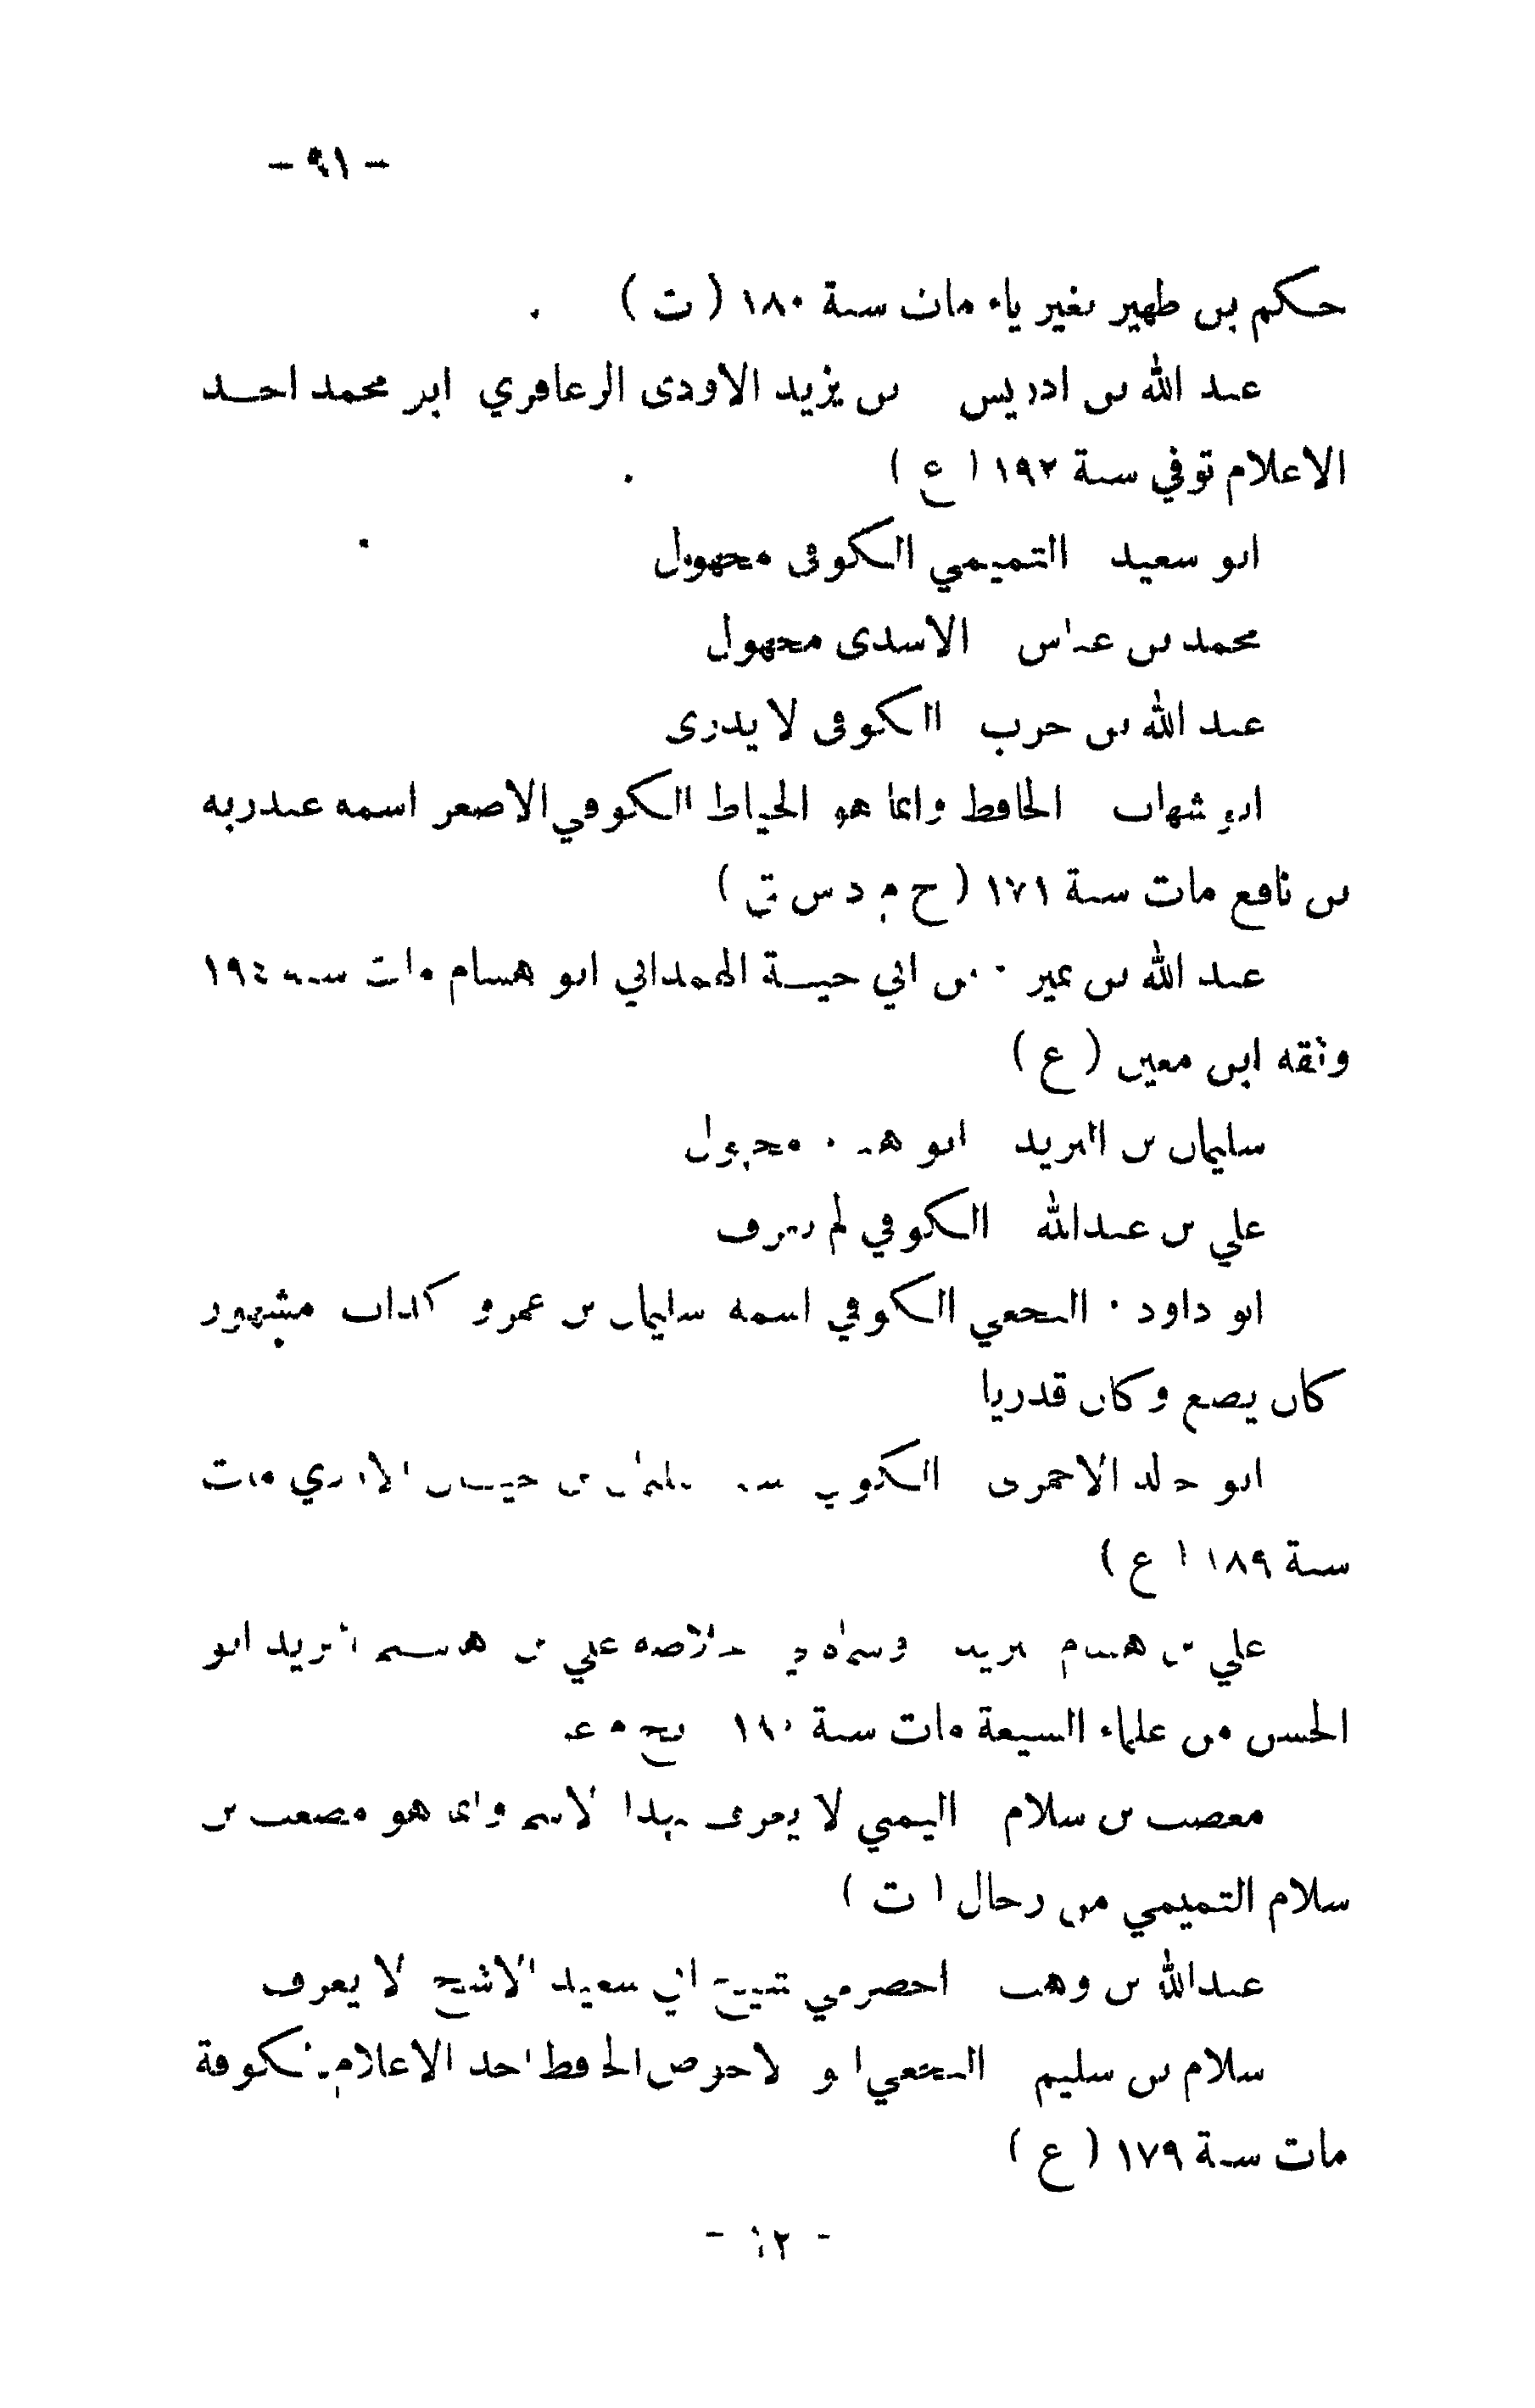 - ٩١ -
حكم بن ظهير بغير ياء مات سنة ١٨٠ ( ت ) .
عبد الله بن ادريس بن يزيد الاودى الزعافري ابو محمد احد
الاعلام توفي سنة ١٩٢ ( ع )
ابو سعيد التميمي الكوفى مجهول
محمد بن عباس الاسدى مجهول
عبد الله بن حرب الكوفى لا يدرى
ابو شهاب الحافظ وانما هو الحياط الكوفي الاصغر اسمه عبدربه
بن نافع مات سنة ١٧١ ( خ م د س ق )
عبد الله بن نمير بن ابي حية الهمداني ابو هشام مات سنة ١٩٤
وثقه ابن معين ( ع )
سليمان بن البريد ابو مجهول
علي بن عبدالله الكوفي لم يعرف
ابو داود النخعي الكوفي اسمه سليمان بن عمرو كذاب مشهور
كان يضع وكان قدريا
ابو خالد الاحمرى الكوفي سليمان بن حيان الازدي مات
سنة ١٨٩ ( ع )
علي بن هشام بريد وسماه في خلاصه علي بن هاشم البريد ابو
الحسن من علماء الشيعة مات سنة
معصب بن سلام اليمني لا يعرف بهذا الاسم وانما هو مصعب بن
سلام التميمي من رجال ( ت )
عبدالله بن وهب الحضرمي شيخ ابي سعيد الاشج لا يعرف
سلام بن سليم النخعي ابو الاحوص الحافظ احد الاعلام بالكوفة
مات سنة ١٧٩ ( ع )